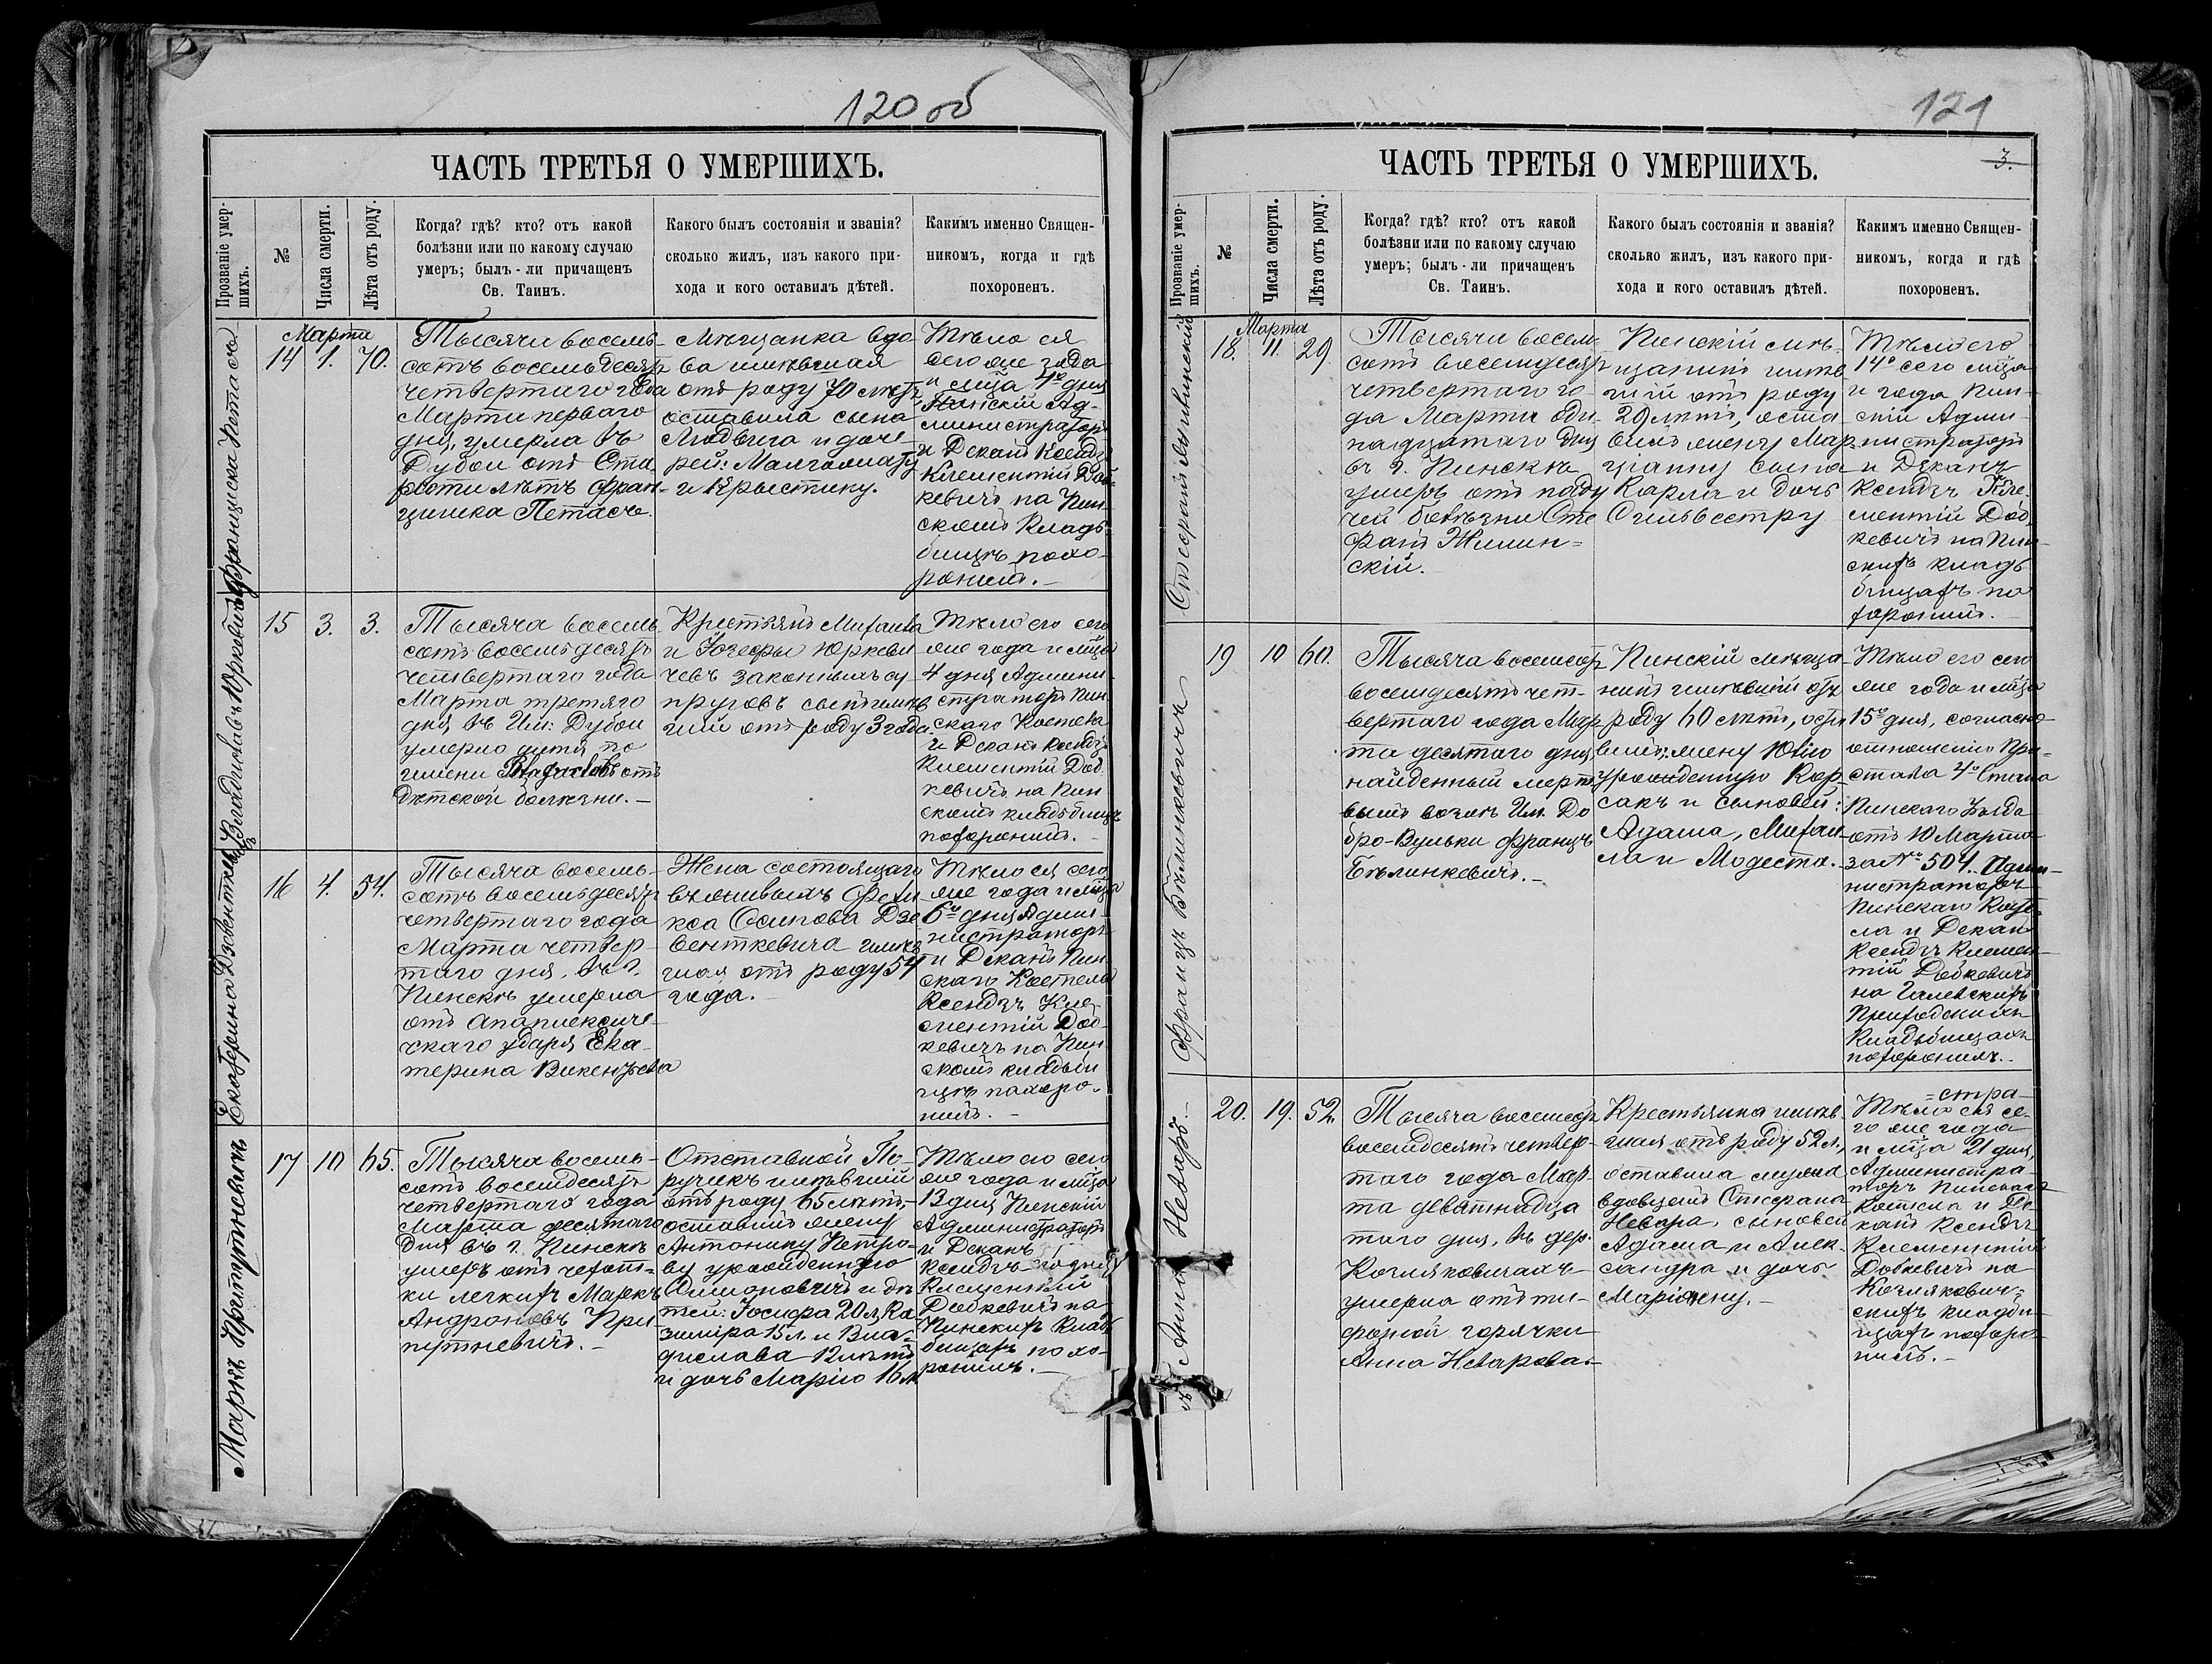 120 об
ЧАСТЬ ТРЕТЬЯ О УМЕРШИХЪ.
Прозваніе умер-
шихъ.
№
Числа смерти.
Лѣта отъ роду.
Когда? гдѣ? кто? отъ какой
болѣзни или по какому случаю
умеръ; былъ-ли причащенъ
Св. Таинъ.
Какого былъ состоянія и званія?
сколько жилъ, изъ какого при-
хода и кого оставилъ дѣтей.
Какимъ именно Священ-
никомъ, когда и гдѣ
похороненъ.
Марта
14 1. 70.
Тысяча восемь-
сотъ восемьдесятъ
четвертаго года
Марта перваго
дня, умерла въ
Дубои отъ Ста-
рости лѣтъ Фран-
цишка Петасъ.
Мѣщанка вдо-
ва имѣвшая
отъ роду 70 лѣтъ
оставила сына
Людвига и доче-
рей:
и Крыстину.
Тѣло ея
сего же года
и мѣца 4го дня
Пинскій Ад-
министраторъ
и Деканъ Ксендзъ
Клементій Дод-
кевичъ на Пин-
скомъ Кладъ-
бищѣ похо-
ронилъ.
15 3. 3.
Тысяча восемь-
сотъ восемьдесятъ
четвертаго года
Марта третяго
дня, въ Им: Дубои
умерло дитя по
имени отъ
Дѣтской болѣзни.
Крестьянъ Михаила
и Юзефы Юркеви-
чевъ законныхъ су-
пруговъ сынъ имѣв-
шій отъ роду 3 года.
Тѣло его сего
же года и мѣца
4 дня Админи-
страторъ Пин-
скаго Костела
и Деканъ Ксендзъ
Клементій Дод-
кевичъ на Пин-
скомъ кладъбищѣ
похоронилъ.
Екатерина Дзевенткевичъ
16 4. 54.
Тысяча восемь-
сотъ восемьдесятъ
четвертаго года
Марта четвер-
таго дня, въ г.
Пинскѣ умерла
отъ апаплексиче-
скаго удара Ека-
терина Викентьева
Жена состоящаго
въ Фели-
кса Осипова Дзе-
венткевича имѣв-
шая отъ роду 54
года.
Тѣло ея сего
же года и мѣца
6го дня Адми-
нистраторъ
и Деканъ Пин-
скаго Костела
Ксендзъ Кле-
ментій Дод-
кевичъ на Пин-
скомъ кладъби-
щѣ похоро-
нилъ.
Маркъ Припутневичъ
17 10 65.
Тысяча восемь-
сотъ восемдесятъ
четвертаго года
Марта десятаго
дня въ г. Пинскѣ
умеръ отъ чехот-
ки легкихъ Маркъ
Андроновъ При-
путневичъ.
Отставной По-
ручикъ имѣвшій
отъ роду 65 лѣтъ,
оставилъ жену
Антонину Петро-
ву урожденную
и дѣ-
тей: Іосифа 20 л, Ка-
зиміра 15 л. и Вла-
дислава 12 лѣтъ
и дочь Марію 16 л.
Тѣло его сего
же года и мѣца
13 дня Пинскій
Администраторъ
и Деканъ
Ксендзъ
Клементій
Додкевичъ на
Пинскихъ Кладъ-
бищахъ похо-
ронилъ.
121
3.
ЧАСТЬ ТРЕТЬЯ О УМЕРШИХЪ.
Прозваніе умер-
шихъ.
№
Числа смерти.
Лѣта отъ роду.
Когда? гдѣ? кто? отъ какой
болѣзни или по какому случаю
умеръ; былъ-ли причащенъ
Св. Таинъ.
Какого былъ состоянія и званія?
сколько жилъ, изъ какого при-
хода и кого оставилъ дѣтей.
Какимъ именно Священ-
никомъ, когда и гдѣ
похороненъ.
Марта
18. 11. 29.
Тысяча восем-
сотъ восемдесятъ
четвертаго го-
да Марта оди-
надцатаго дня
въ г. Пинскѣ
умеръ отъ паду-
чей болѣзни Сте-
фанъ Жилин-
скій.
Пинскій мѣ-
щанинъ имѣв-
шій отъ роду
29 лѣтъ, оста-
вилъ жену Мар-
ціанну сына
Карла и дочь
Сильвестру
Тѣло его
14го сего мѣца
и года Пин-
скій Адми-
нистраторъ
и Деканъ
Ксендзъ Кле-
ментій Дод-
кевичъ на Пин-
скихъ кладъ-
бищахъ по-
хоронилъ.
Францъ Бѣлинкевичъ
19 10 60.
Тысяча восемсотъ
восемдесятъ чет-
вертаго года Мар-
та десятаго дня,
найденный мерт-
вымъ возлѣ Им. До-
бро-Вульки Францъ
Бѣлинкевичъ.
Пинскій мѣща-
нинъ имѣвшій отъ
роду 60 лѣтъ, оста-
вилъ: жену Юлію
урожденную Кор-
сакъ и сыновей:
Адама, Михаи-
ла и Модеста.
Тѣло его сего
же года и мѣца
15го дня, согласно
отношенію При-
става 4го Стана
Пинскаго Уѣзда
отъ 10 Марта
за № 504. Адми-
нистраторъ
Пинскаго Косте-
ла и Деканъ
Ксендзъ Клемен-
тій Додкевичъ
на Галевскихъ
Приходскихъ
Кладъбищахъ
похоронилъ.
Анна Неваръ.
20. 19. 52.
Тысяча восемсотъ
восемдесятъ четвер-
таго года Мар-
та девятнадца-
таго дня, въ дер.
Кочляковичахъ
умерла отъ ти-
фозной горячки
Анна Неварова
Крестьянка имѣв-
шая отъ роду 52 л.,
оставила мужа
вдовцемъ Стефана
Невара, сыновей
Адама и Алек-
сандра и дочь
Маріянну.
Тѣло ея се-
го же года
и мѣца 21 дня,
Администра-
торъ Пинскаго
Костела и Де-
канъ Ксендзъ
Клементій
Додкевичъ на
Кочлякович-
скихъ кладби-
щахъ похоро-
нилъ.